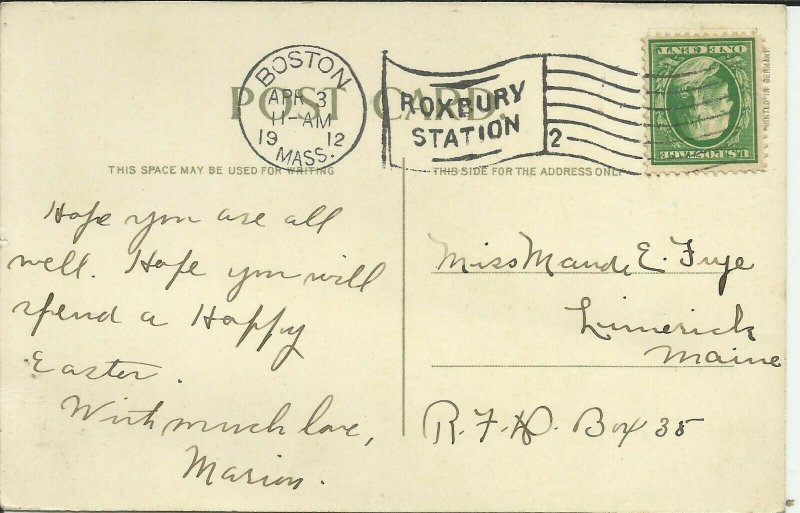 POST CARD.
BOSTON
APR 3
11-AM
19 12
MASS.
ROXBURY
STATION
2
ONE CENT
U.S. POSTAGE
PRINTED IN GERMANY
THIS SPACE MAY BE USED FOR WRITING
THIS SIDE FOR THE ADDRESS ONLY
Hope you are all
well. Hope you will
spend a Happy
Easter.
With much love,
Marion.
Miss Maude E. Frye
Limerick
Maine
R.F.D. Box 35